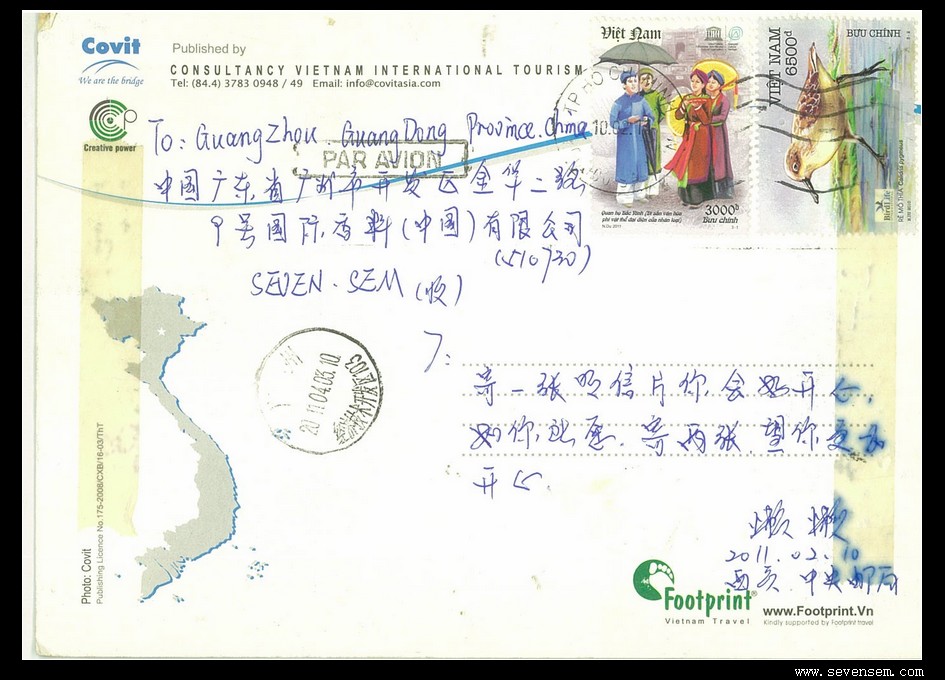 Covit
We are the bridge
Published by
CONSULTANCY VIETNAM INTERNATIONAL TOURISM
Tel: (84.4) 3783 0948 / 49 Email: info@covitasia.com
Creative power
Việt Nam
3000đ
Bưu chính
Quan họ Bắc Ninh (Di sản văn hóa
phi vật thể đại diện của nhân loại)
VIỆT NAM
6500đ
BƯU CHÍNH
BirdLife
To: GuangZhou. GuangDong Province. China
PAR AVION
中国广东省广州市开发区金华二路
9号国际香料(中国)有限公司
(510730)
SEVEN. SEM (收)
7:
寄一张明信片你会如开心,
如你所愿. 寄两张. 望你更加
开心.
懒懒
2011.02.10
西贡. 中央邮局
2011.04.03.10
Photo: Covit
Publishing Licence No.175-2008/CXB/16-03/ThT
Footprint®
Vietnam Travel
www.Footprint.Vn
Kindly supported by Footprint travel
www.sevensem.com